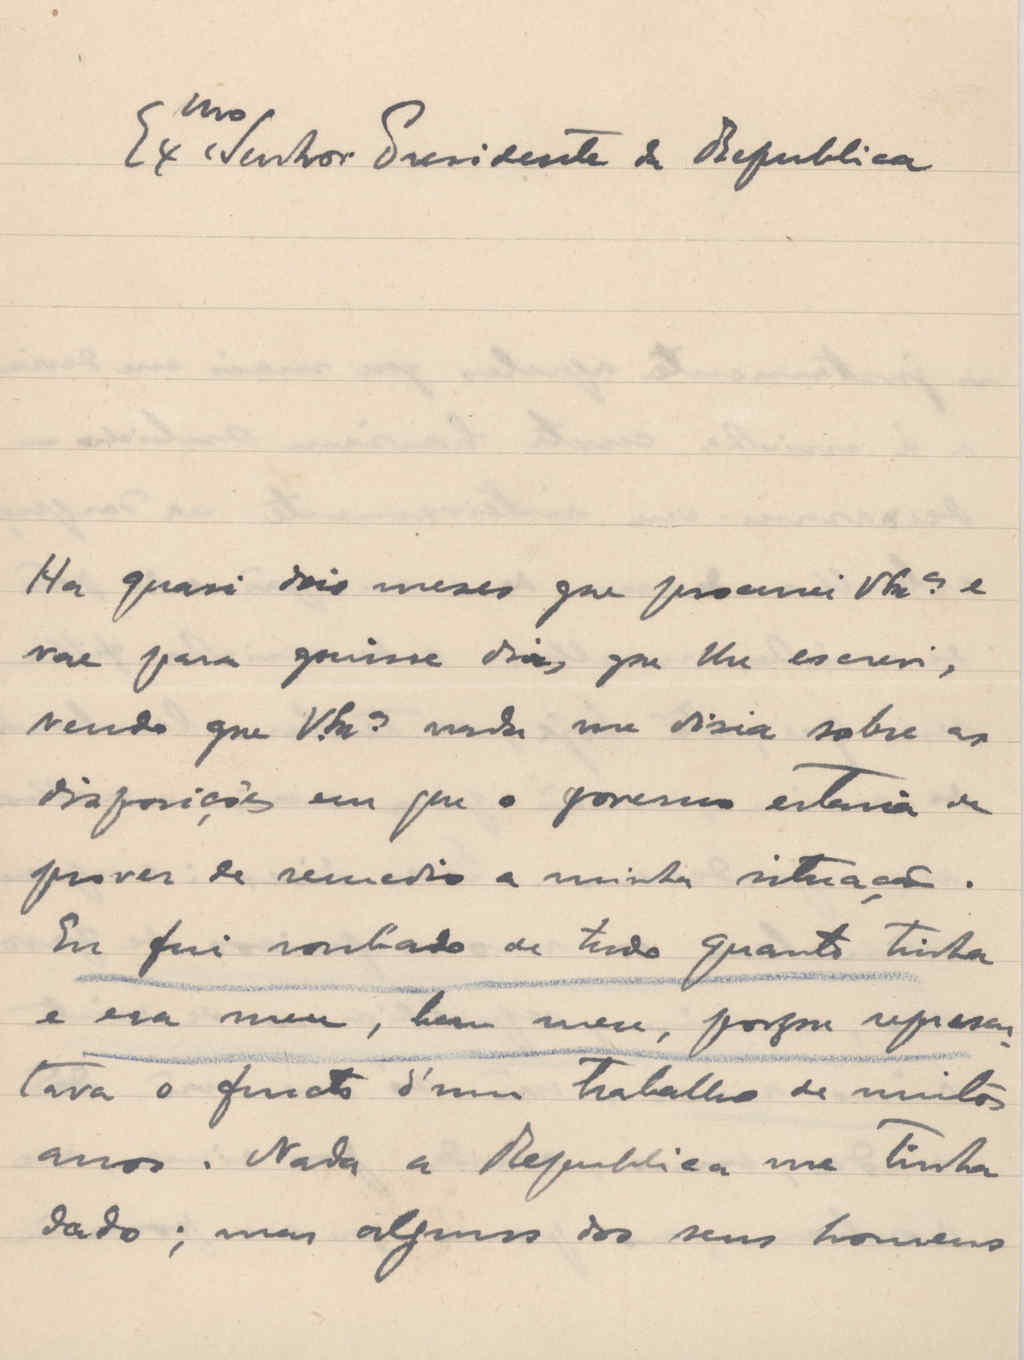 Exmo Senhor Presidente da Republica
Ha quasi dois meses que procurei V. Exª e
vae para quinse dias, que lhe escrevi,
vendo que V. Exª nada me disia sobre as
disposições em que o governo estaria de
prover de remedio a minha situação.
Eu fui roubado de tudo quanto tinha
e era meu, bem meu, porque represen-
tava o fructo d'um trabalho de muitos
anos. Nada a Republica me tinha
dado; mas alguns dos seus homens